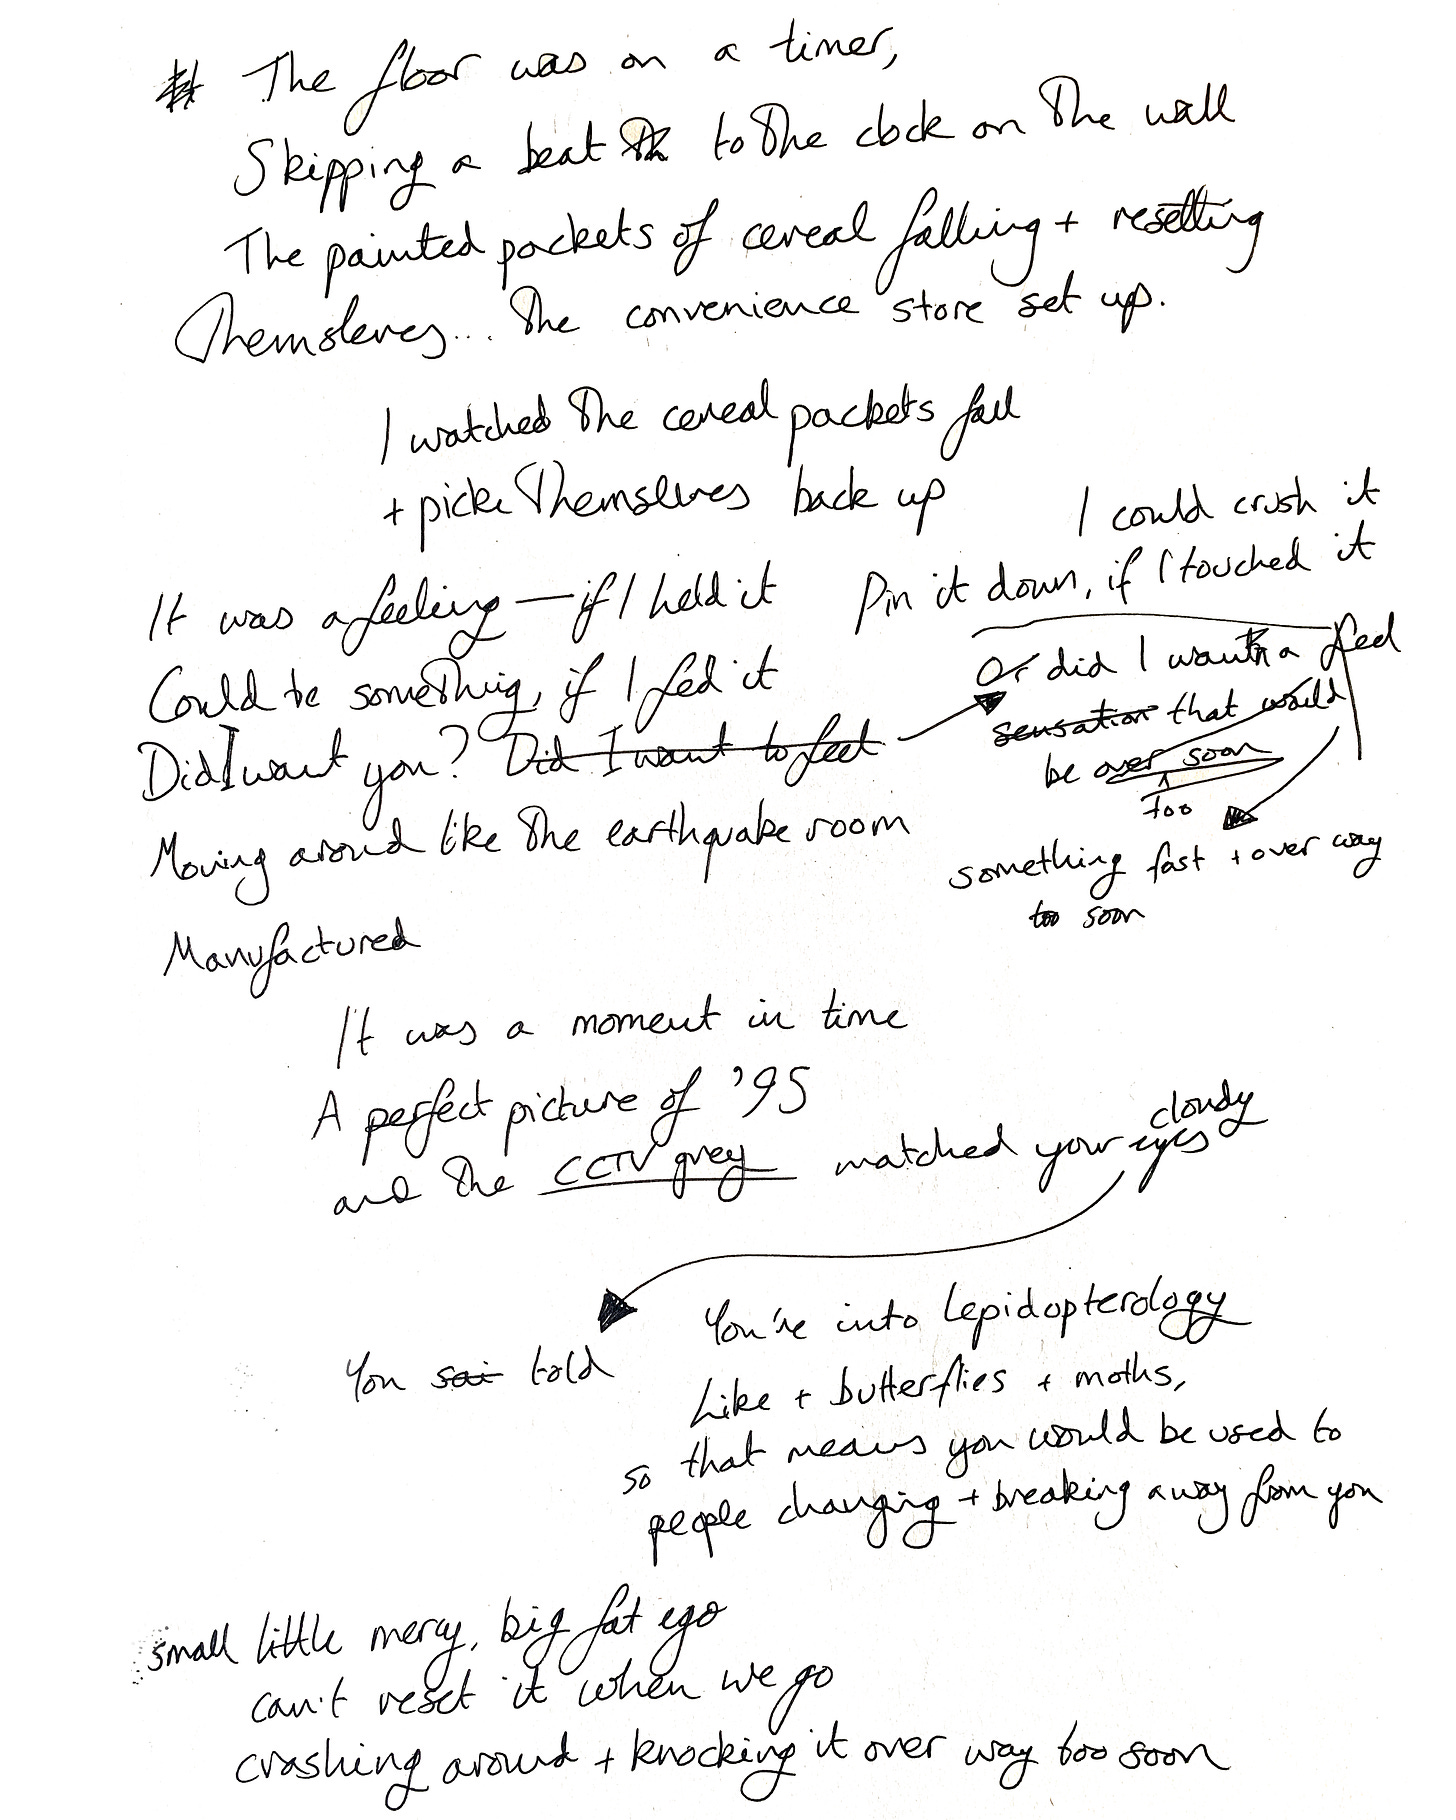 The floor was on a timer,
Skipping a beat to the clock on the wall
The painted packets of cereal falling + resetting
Themsleves... The convenience store set up.
I watched the cereal packets fall
+ picke Themsleves back up
I could crush it
Pin it down, if I touched it
It was a feeling — if I held it
Could be something, if I fed it
Did I want you? Did I want to feel
Or did I want a feel
sensation that would
be over soon
too
something fast + over way
too soon
Moving around like the earthquake room
Manufactured
It was a moment in time
A perfect picture of '95
cloudy
and the CCTV grey matched your eyes
You're into Lepidopterology
You sai told
Like + butterflies + moths,
so that means you would be used to
people changing + breaking away from you
small little mercy, big fat ego
can't reset it when we go
crashing around + knocking it over way too soon